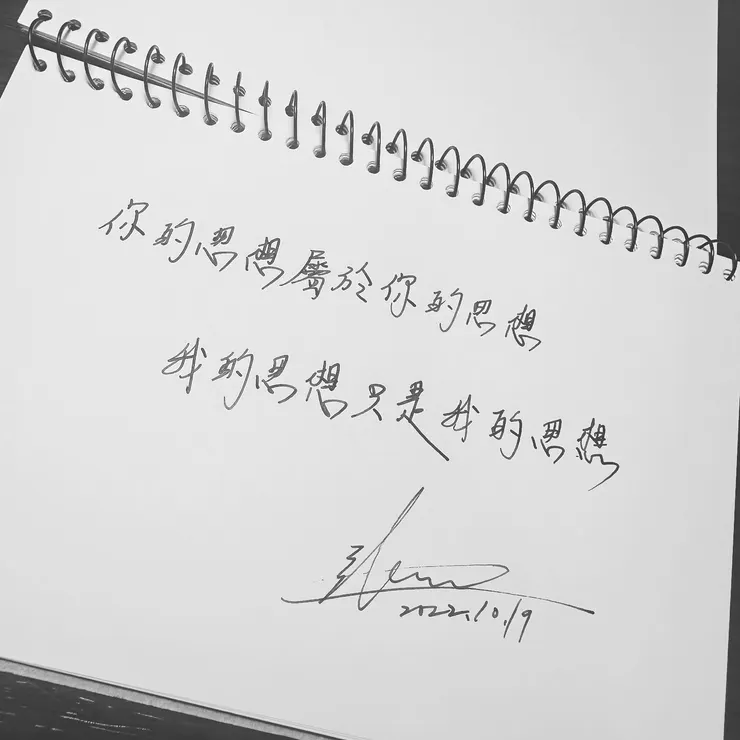 你的思想屬於你的思想
我的思想只是我的思想
2022.10.19